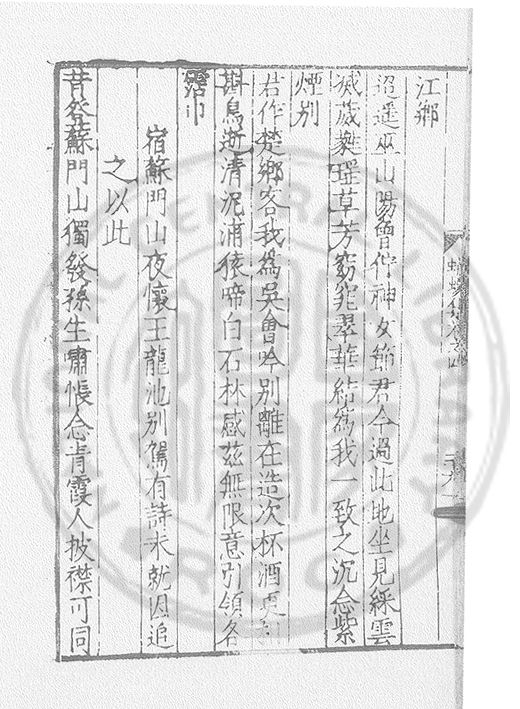 江鄉
迢遥巫山陽曾佇神女節君今過此地坐見綵雲
滅葳蕤瑶草芳窈窕翠華結為我一致之沉念紫
煙別
君作楚鄉客我為吳會吟別離在造次杯酒更
斟鳥逝清泥浦猿啼白石林感茲無限意引領各
霑巾
宿蘇門山夜懷王龍池別駕有詩未就因追
之以此
昔登蘇門山獨發孫生嘯悵念青霞人披襟可同
蠛蠓集卷四